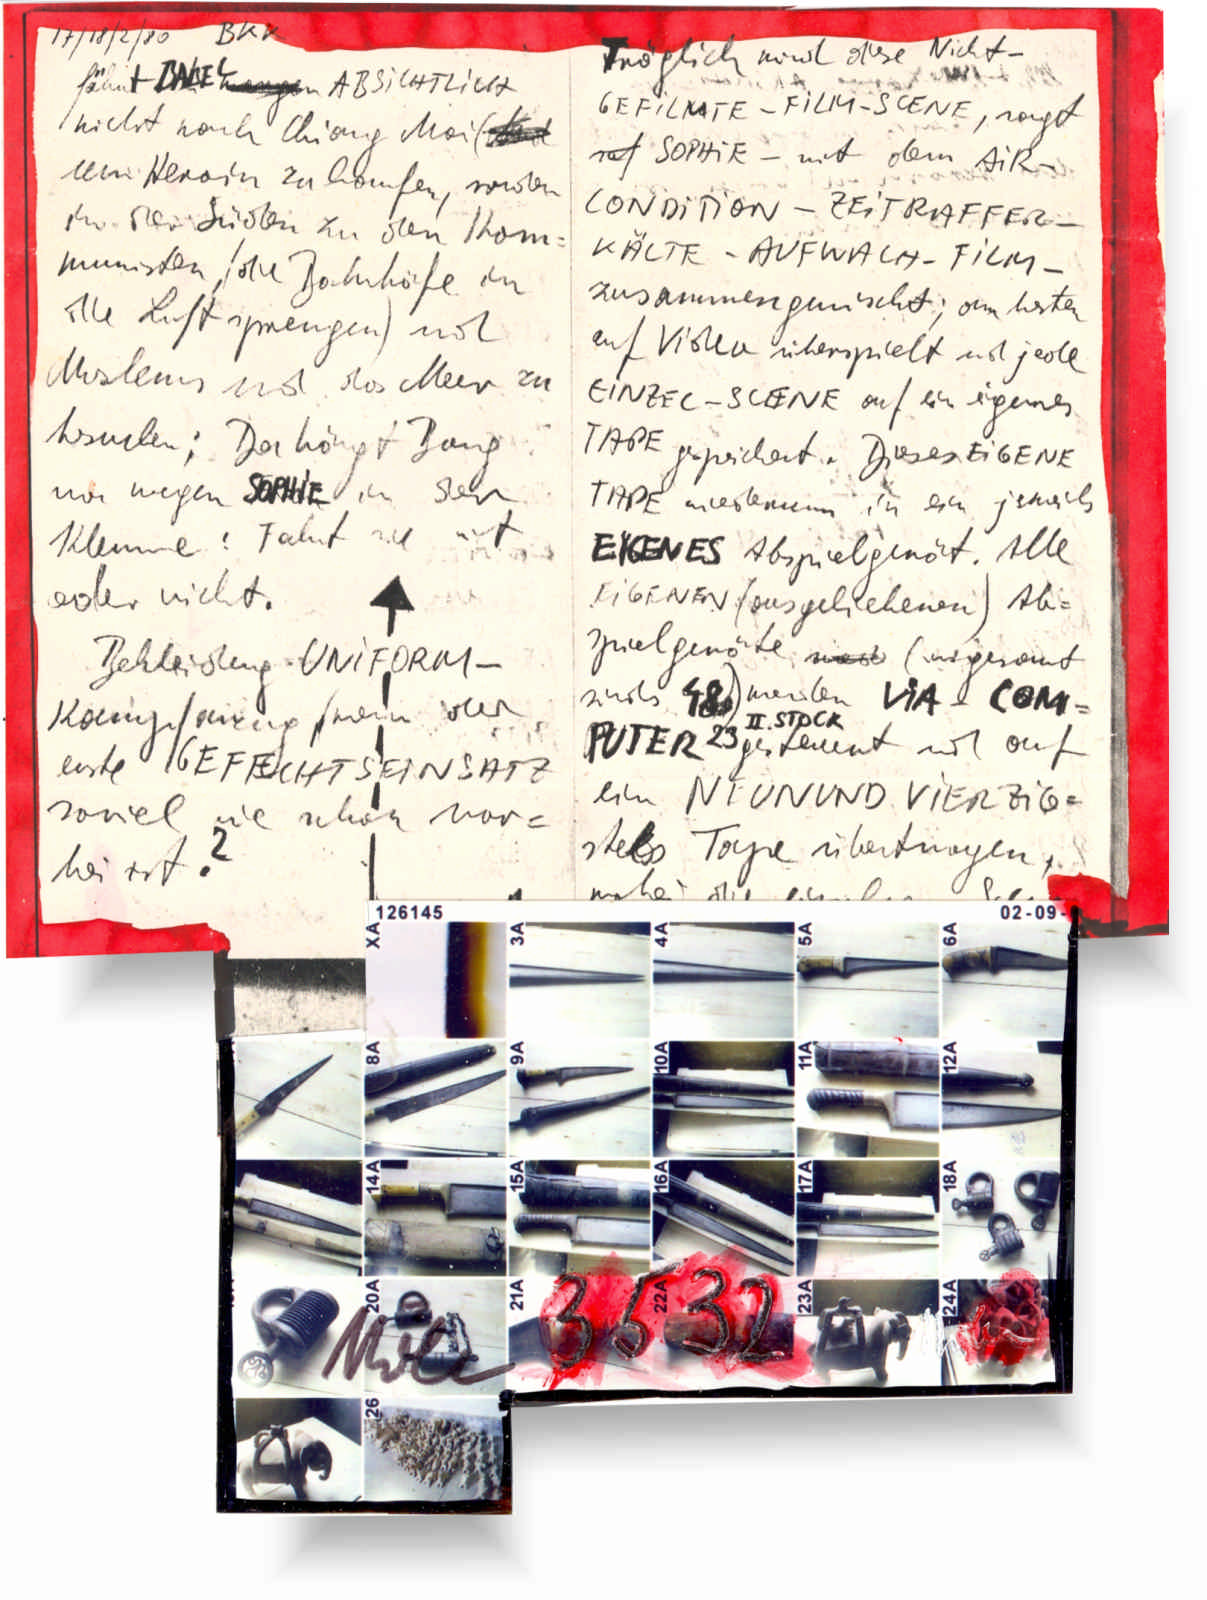 17/18/2/80 BKK
fährt BABEL ABSICHTLICH
nicht nach Chiang Mai (
um Heroin zu kaufen, sondern
in den Süden zu den Kom=
munisten, (die Bahnhöfe in
die Luft sprengen) und
Moslems und das Meer zu
besuchen; Da hängt Bang
nur wegen SOPHIE in der
Klemme: Fährt sie mit
oder nicht.
Bekleidung UNIFORM-
wenn der
erste GEFECHTSEINSATZ
soviel wie schon vor=
bei ist?
Tröglich wird diese Nicht-
GEFILMTE-FILM-SCENE, sagt
SOPHIE - mit dem AIR-
CONDITION-ZEITRAFFER-
KÄLTE-AUFWACH-FILM-
zusammengemischt; am besten
auf Video überspielt und jede
EINZEL-SCENE auf ein eigenes
TAPE gespeichert. Dieses EIGENE
TAPE wiederum in ein jeweils
EIGENES Abspielgerät. Alle
EIGENEN (ausgeliehenen) Ab=
spielgeräte (insgesamt
sind's 48) werden VIA COM=
PUTER 23 II. STOCK gesteuert und auf
ein NEUNUNDVIERZIG=
stels Tape übertragen,
wobei die einzelnen
XA 126145 02-09-
3A 4A 5A 6A
8A 9A 10A 11A 12A
14A 15A 16A 17A 18A
20A 21A 22A 23A 24A
3532
26